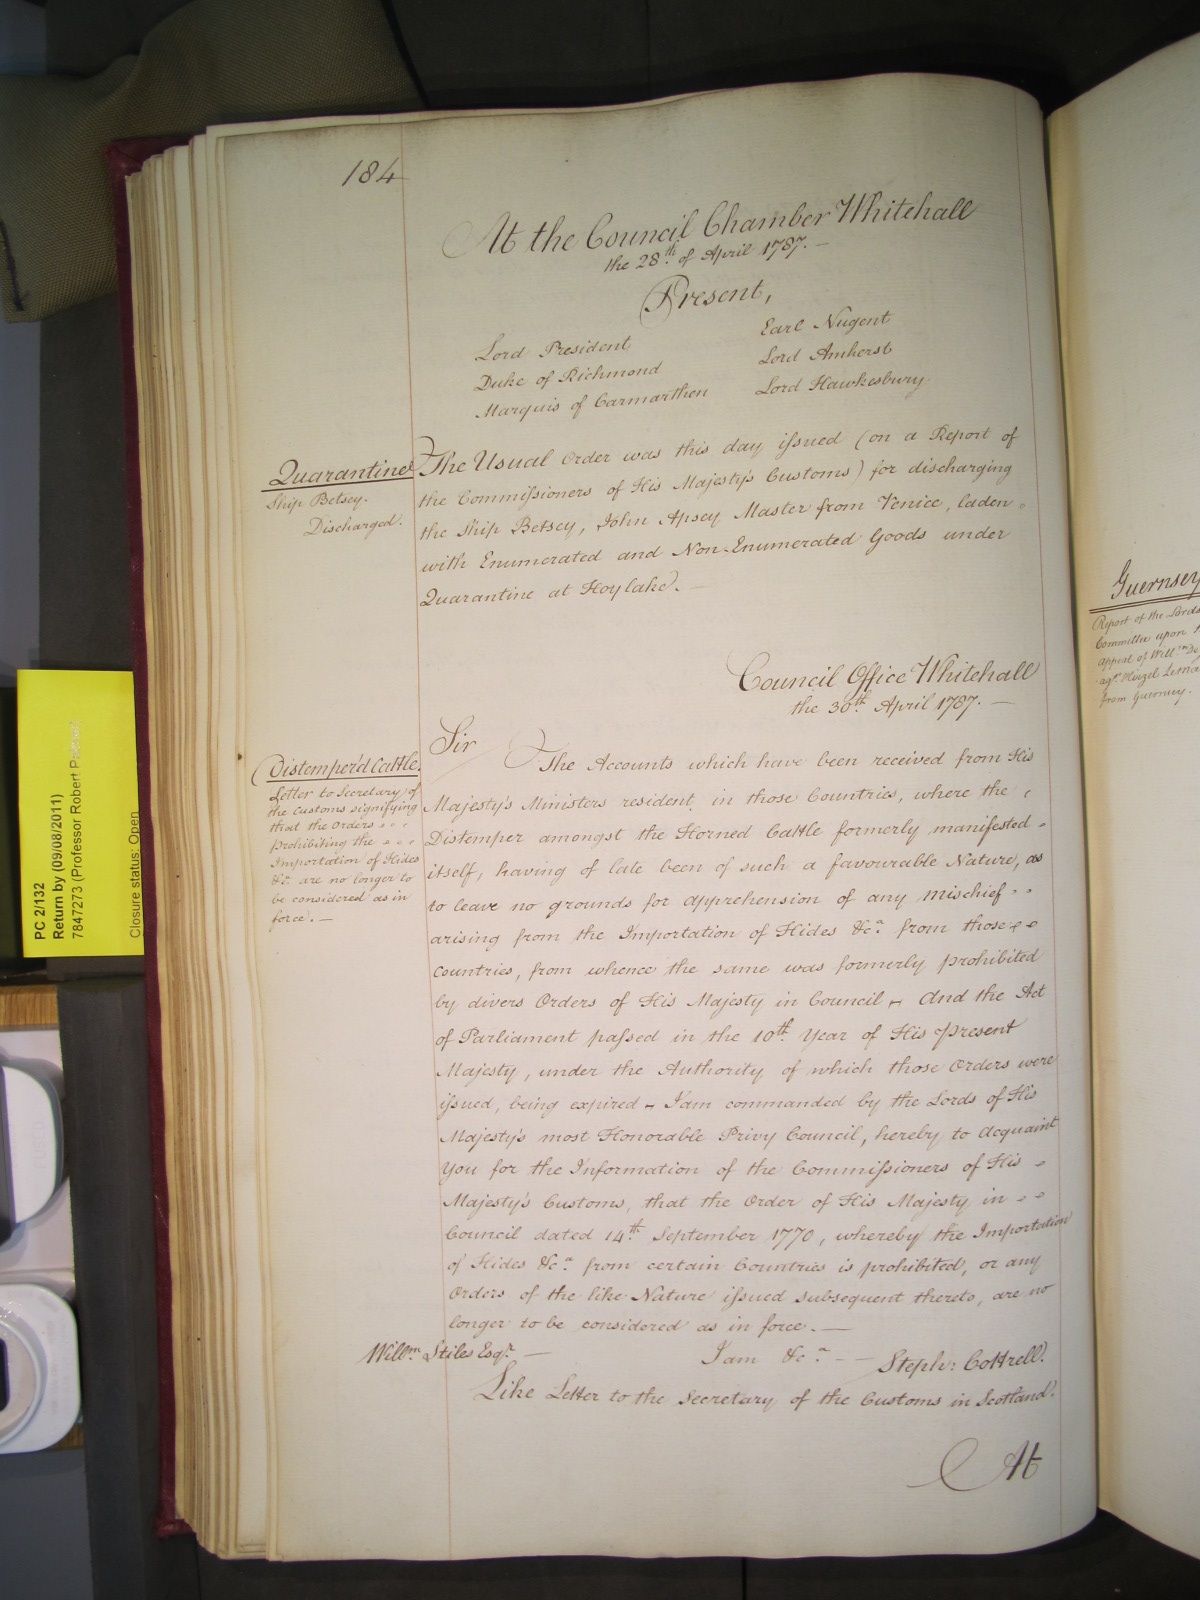 184
At the Council Chamber Whitehall
the 28th. of April 1787. —
Present,
Lord President
Duke of Richmond
Marquis of Carmarthen
Earl Nugent
Lord Amherst
Lord Hawkesbury
Quarantine
Ship Betsey.
Discharged.
The Usual Order was this day issued (on a Report of
the Commissioners of His Majesty's Customs) for discharging
the Ship Betsey, John Apsey Master from Venice, laden
with Enumerated and Non-Enumerated Goods under
Quarantine at Hoylake. —
Council Office Whitehall
the 30th. April 1787. —
Distemper'd Cattle.
Letter to Secretary of
the Customs signifying
that the Orders
prohibiting the
Importation of Hides
&ca. are no longer to
be considered as in
force. —
Sir
The Accounts which have been received from His
Majesty's Ministers resident in those Countries, where the
Distemper amongst the Horned Cattle formerly manifested
itself, having of late been of such a favourable Nature, as
to leave no grounds for apprehension of any Mischief
arising from the Importation of Hides &ca. from those
Countries, from whence the same was formerly prohibited
by divers Orders of His Majesty in Council, – And the Act
of Parliament passed in the 10th. Year of His present
Majesty, under the Authority of which those Orders were
issued, being expired – I am commanded by the Lords of His
Majesty's most Honorable Privy Council, hereby to Acquaint
You for the Information of the Commissioners of His
Majesty's Customs, that the Order of His Majesty in
Council dated 14th. September 1770, whereby the Importation
of Hides &ca. from certain Countries is prohibited, or any
Orders of the like Nature issued subsequent thereto, are no
longer to be considered as in force. —
Willm. Stiles Esqr. —
I am &ca. — — Steph: Cottrell.
Like Letter to the Secretary of the Customs in Scotland.
At
Guernsey
Report of the Lords
Committee upon
appeal of Willm. De
agt. Hirzel
from Guernsey.
PC 2/132
Return by (09/08/2011)
7847273 (Professor Robert
Closure status: Open